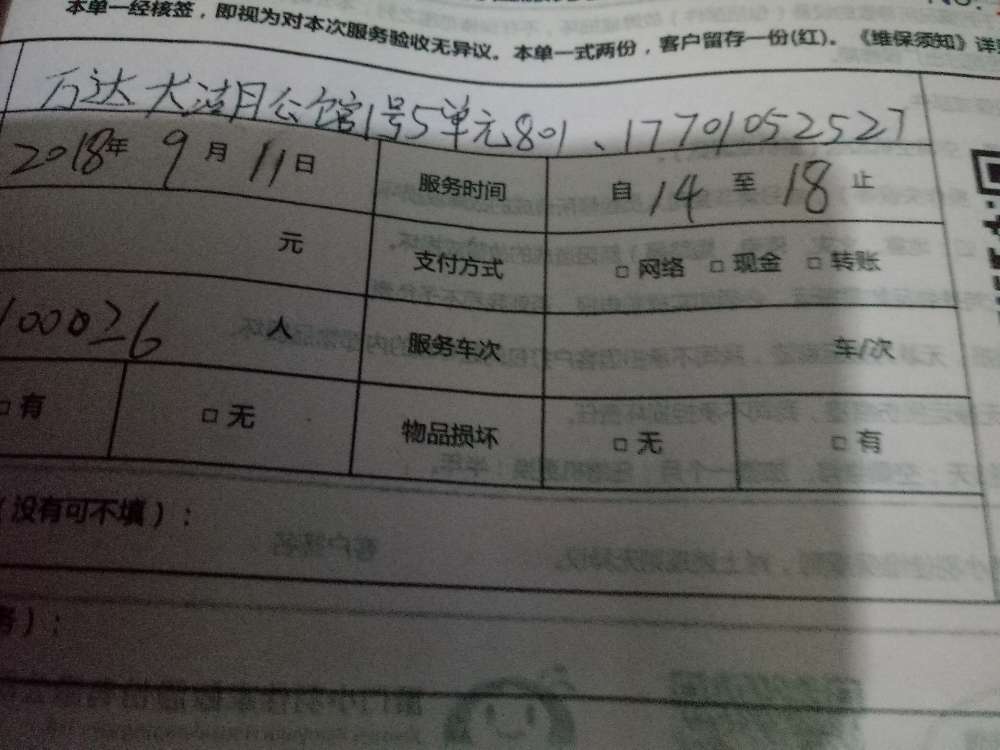 本单一经核签，即视为对本次服务验收无异议。本单一式两份，客户留存一份(红)。《维保须知》详
万达 大湖月公馆1号5单元801、17701052527
2018年 9 月 11 日 服务时间 自 14 至 18 止
元 支付方式 □ 网络 □ 现金 □ 转账
人 服务车次 车/次
□ 有 □ 无 物品损坏 □ 无 □ 有
（没有可不填）：
）：